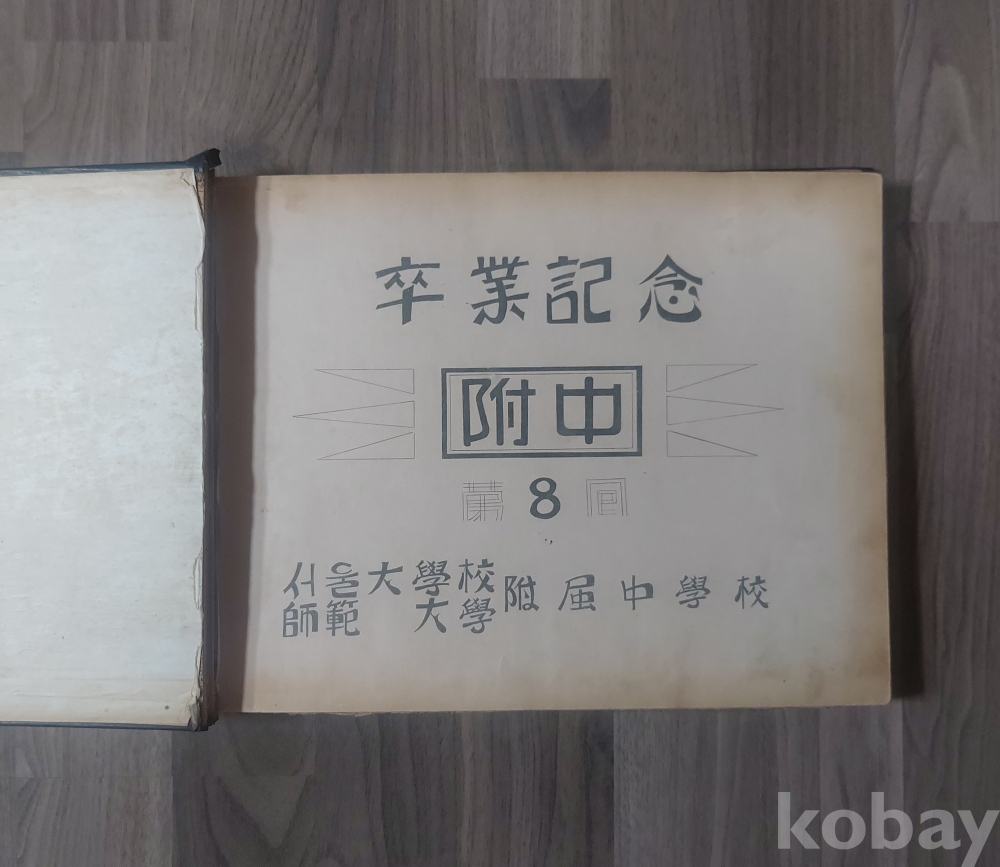 卒業記念
附中
第8回
서울大學校
師範大學
附属中學校
kobay